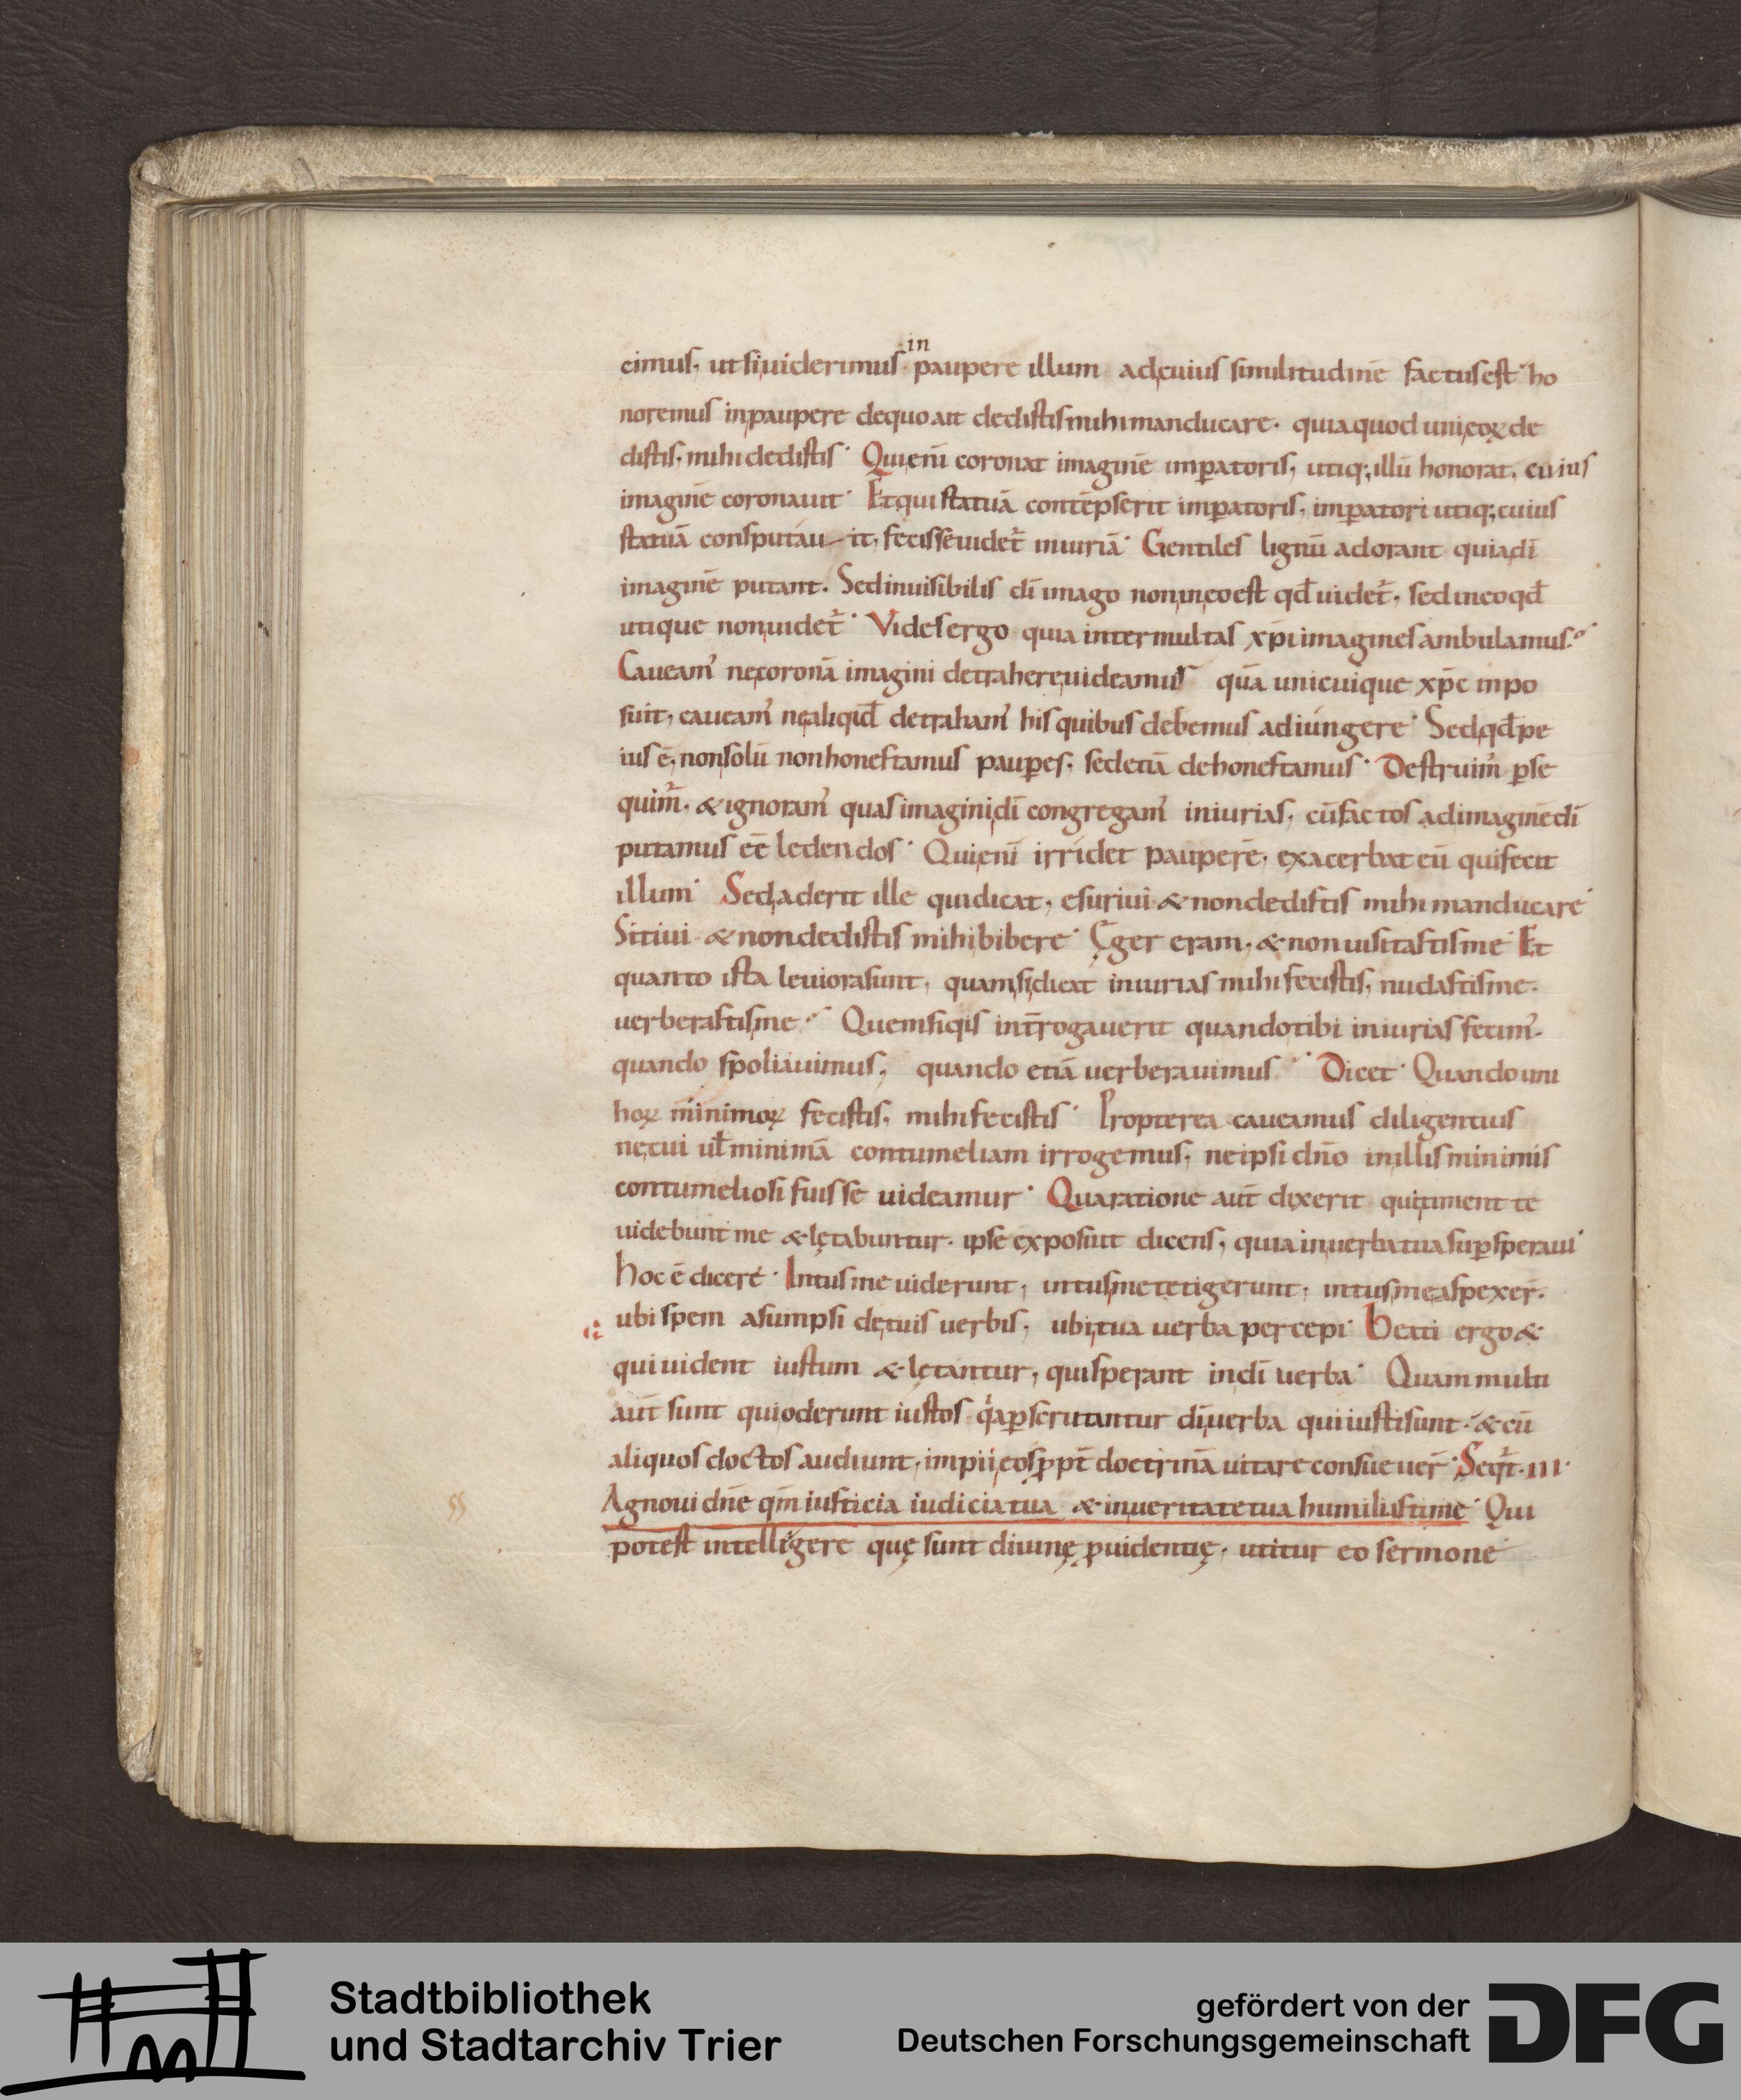 in
cimus, ut si uiderimus paupere illum ad cuius similitudinē factus est ho
noremus in paupere de quo ait dedistis mihi manducare. quia quod uni eoꝝ de
distis, mihi dedistis. Qui eni coronat imaginē imꝑatoris, utiq; illū honorat, cuius
imaginē coronauit. Et qui statuā contēpserit imꝑatoris, imꝑatori utiq; cuius
statuā consputau it, fecisse uidet̄ iniuriā. Gentiles lignū adorant quia dī
imaginē putant. Sed inuisibilis dī imago non in eo est qđ uidet̄, sed in eo qđ
utique non uidet̄. Vides ergo quia inter multas xp̄i imagines ambulamus.
Caueam̄ ne coronā imagini detrahere uideamus quā unicuique xp̄c inpo
suit, caueam̄ ne aliqid̄ detraham̄ his quibus debemus adiungere. Sed qđ pe
ius ē, non solū non honestamus pauꝑes, sed etiā dehonestamus. Destruim̄ ꝑse
quim̄, & ignoram̄ quas imagini dī congregam̄ iniurias, cū factos ad imaginē dī
putamus eē ledendos. Qui eni irridet pauperē, exacerbat eū qui fecit
illum. Sed aderit ille qui dicat, esuriui & non dedistis mihi manducare
Sitiui & non dedistis mihi bibere. Ęger eram, & non uisitastis me. Et
quanto ista leuiora sunt, quam si dicat iniurias mihi fecistis, nudastis me.
uerberastis me. Quem si qis int̄rogauerit quando tibi iniurias fecim̄.
quando spoliauimus, quando etiā uerberauimus. Dicet. Quando uni
hoꝝ minimoꝝ fecistis, mihi fecistis. Propterea caueamus diligentius
ne cui ul̄ minimā contumeliam irrogemus, ne ipsi dn̄o in illis minimis
contumeliosi fuisse uideamur. Qua ratione aut̄ dixerit qui timent te
uidebunt me & lętabuntur. ipse exposuit dicens, quia in uerba tua suꝑsperaui
hoc ē dicere. Intus me uiderunt, intus me tetigerunt, intus me aspexer̄.
ubi spem asumpsi de tuis uerbis, ubi tua uerba percepi. Beati ergo &
qui uident iustum & lętantur, qui sperant in dī uerba. Quam multi
aut̄ sunt qui oderunt iustos qa ꝑscrutantur dī uerba qui iusti sunt. & cū
aliquos doctos audiunt, impii eos ꝓpt̄ doctrinā uitare consueuer̄. Seqt̄. III.
Agnoui dn̄e qm̄ iusticia iudicia tua & in ueritate tua humiliasti me. Qui
potest intelligere quę sunt diuinę ꝓuidentię, utitur eo sermone
Stadtbibliothek
und Stadtarchiv Trier
gefördert von der
Deutschen Forschungsgemeinschaft
DFG